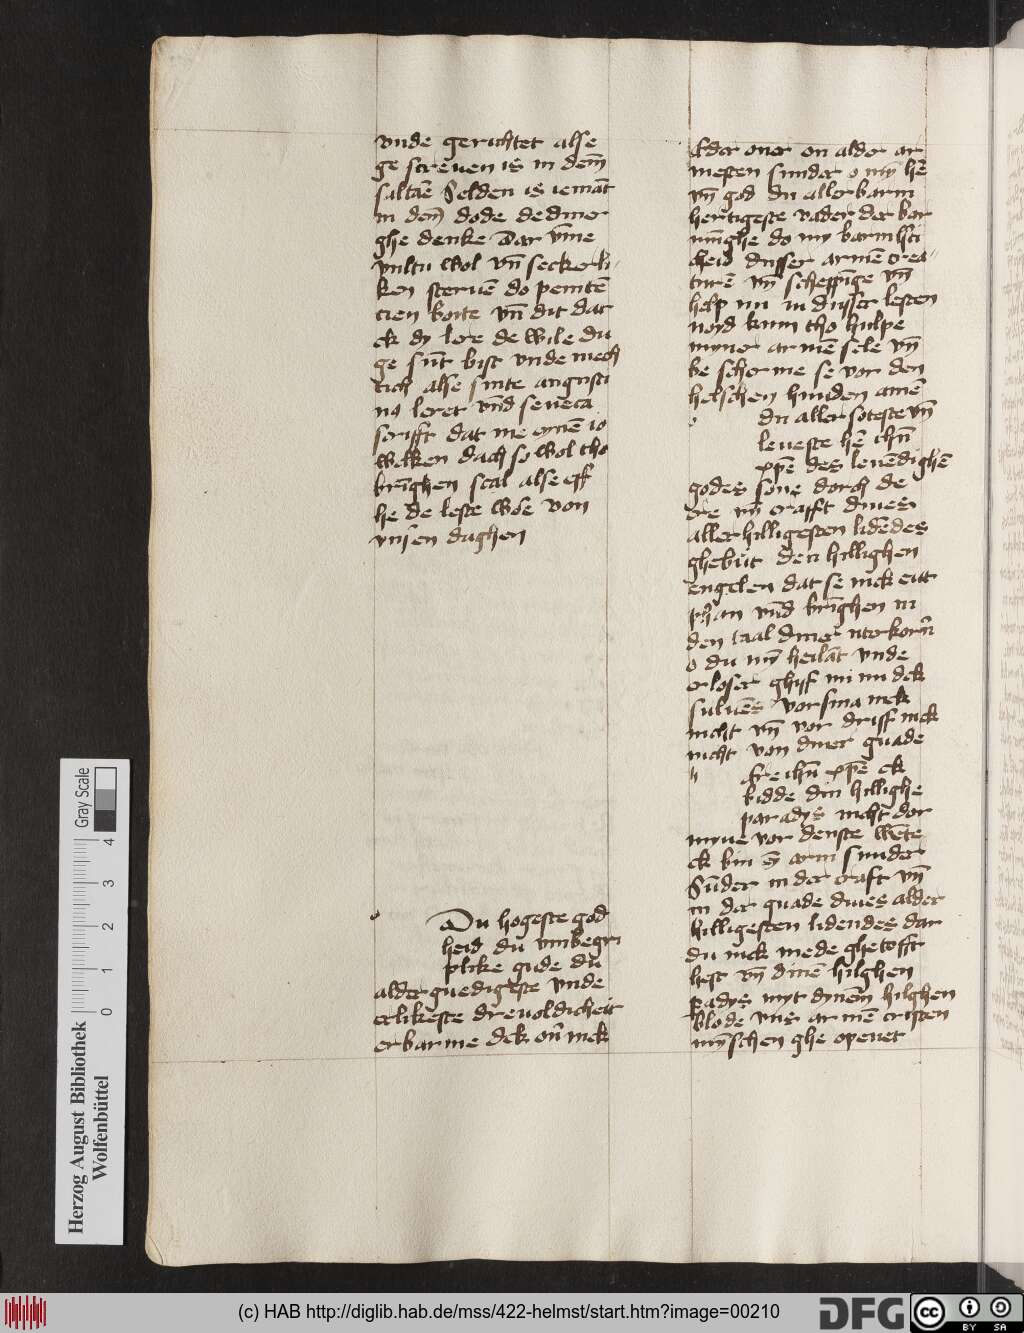 vnde gerichtet alse
ge screuen is in dem̄
saltāe Selden is iemāt
in dem̄ dode de dmer
ghe denke Dar vm̄e
vultu wol vn̄ seckerli-
ken steruē do penitē
cien korte vn̄ dit dat
ck dy lere de wile du
ge sūt bist vnde mech
tich alse sinte augusti
nꝰ leret vn̄d seneca
scrifft dat me eynē io
welken dach so wol tho
brīghen scal alse eff
he de leste wēe von
vnsen daghen
o
Du hogeste god
heid du vmbegri
plike gude du
alder guedigeste vnde
erlikeste dreuoldicheit
erbarme dek ou̅ mek
Eder ouer en alder ar
mesten sunder o my hē
vn̄ god du aller barm
hertigeste vader der bar
mīghe do my barmhti
cheid dusser armē crea-
turē vn̄ scheppīge vn̄
help mi in dusser lesten
noyd kum tho hulpe
myner armē sele vn̄
be scherme se vor den
helschen hunden amē
o
du aller soteste vn̄
leueste hē ihū
xp̄e des leuēdighē
godes sone dorch de
ere vn̄ crafft dines
aller hilligesten lidēdes
ghebut den hillighen
engelen dat se mek ent
phan vn̄d brīghen in
den taal diner vterkorn̄
o du my̅ heilāt vnde
erloser ghyf mi nu dek
suluēs vorsma mek
nicht vn̄ vor driff mek
nicht von diner guade
h
Ere ihū xp̄e ek
bidde din hillighe
paradys nicht dor
myne vor denste wēte
ek bin eȳ arm sunder
Sūder in der craft vn̄
in der guade dines alder
hilligesten lidendes dar
du mek mede ghekofft
hest vn̄ dinē hilghen
padys myt dynem̄ hilghen
blode vns armē cristen
mȳschen ghe openet
Gray Scale
0 1 2 3 4
Herzog August Bibliothek
Wolfenbüttel
(c) HAB http://diglib.hab.de/mss/422-helmst/start.htm?image=00210
DFG
cc
BY SA